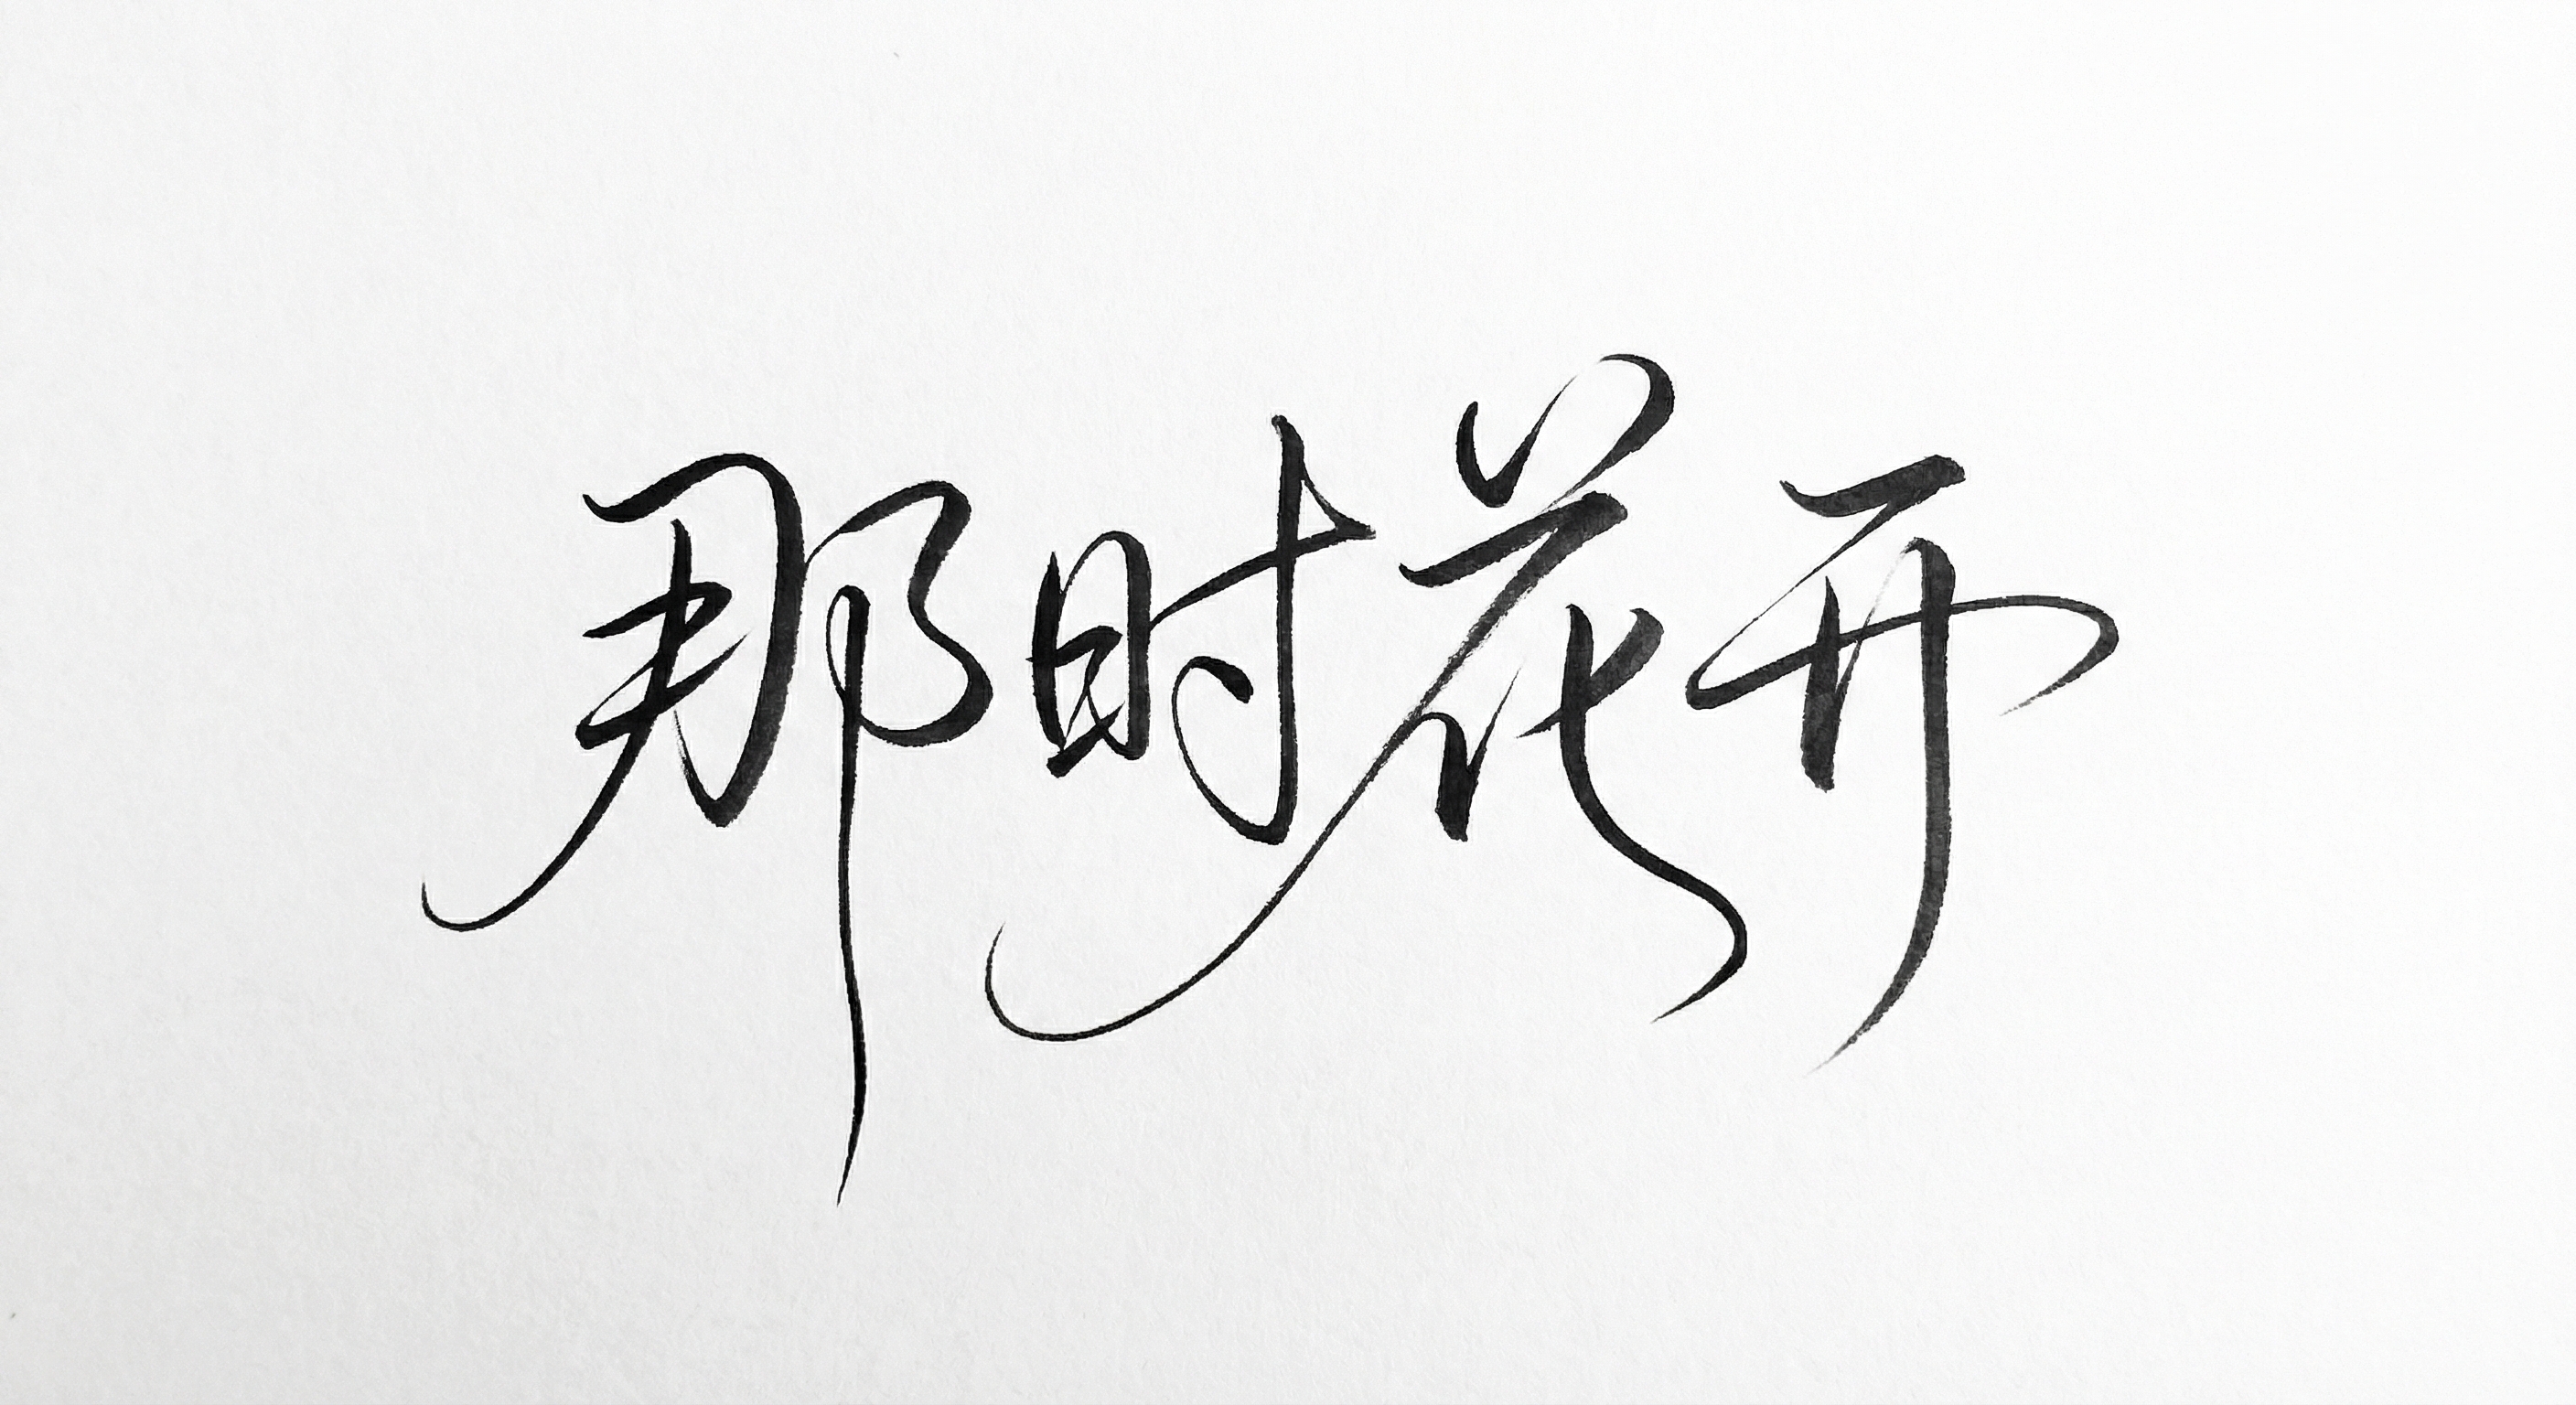 那时花开